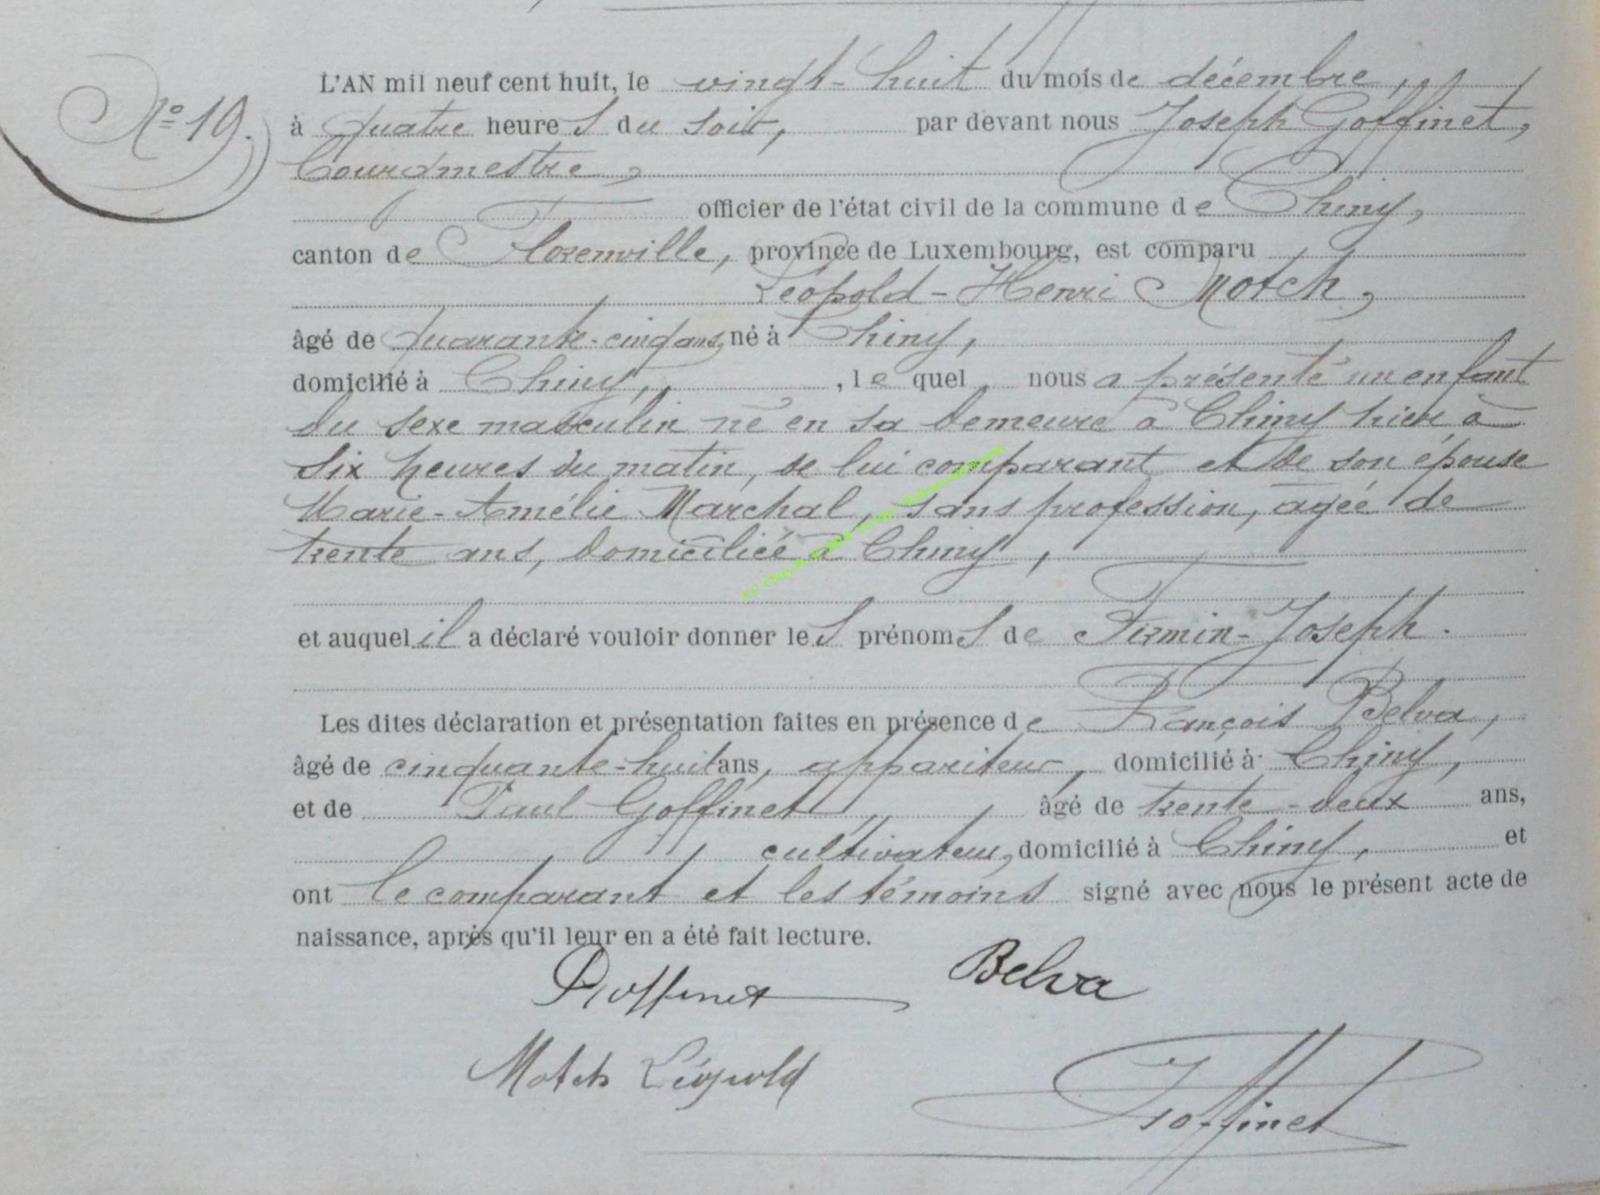 L'AN mil neuf cent huit, le vingt-huit du mois de décembre,
Nº 19.
à quatre heures du soir, par devant nous Joseph Goffinet,
Bourgmestre,
officier de l'état civil de la commune de Chiny,
canton de Florenville, province de Luxembourg, est comparu
Léopold-Henri Motch,
âgé de quarante-cinq ans, né à Chiny,
domicilié à Chiny, , lequel, nous a présenté un enfant
du sexe masculin né en sa demeure à Chiny hier à
six heures du matin, de lui comparant et de son épouse
Marie-Amélie Marchal, sans profession, agée de
trente ans, domiciliée à Chiny,
et auquel il a déclaré vouloir donner les prénoms de Firmin-Joseph.
Les dites déclaration et présentation faites en présence de François Belva,
âgé de cinquante-huit ans, appariteur, domicilié à Chiny,
et de Paul Goffinet, âgé de trente-deux ans,
cultivateur, domicilié à Chiny, et
ont le comparant et les témoins signé avec nous le présent acte de
naissance, après qu'il leur en a été fait lecture.
Goffinet Belva
Motch Léopold
Goffinet